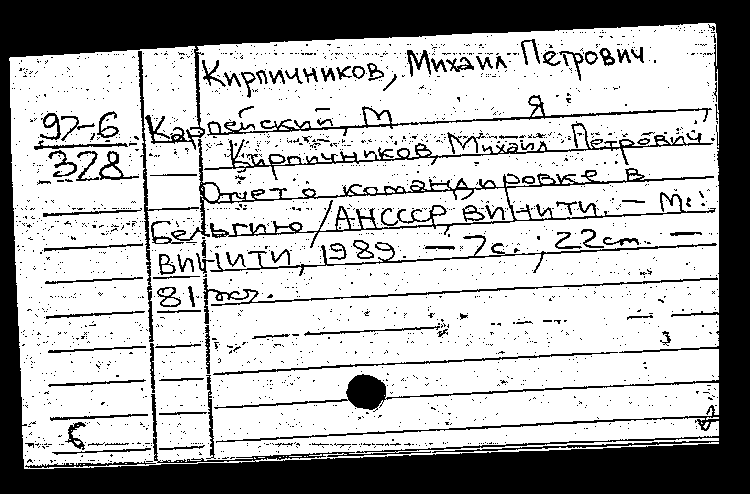 Кирпичников, Михаил Петрович.
97-6 Карпейский, М Я,
378 Кирпичников, Михаил Петрович.
Отчет о командировке в
Бельгию / АНСССР, ВИНИТИ. - М.:
ВИНИТИ, 1989. - 7с.; 22cm. -
81 экз.
6